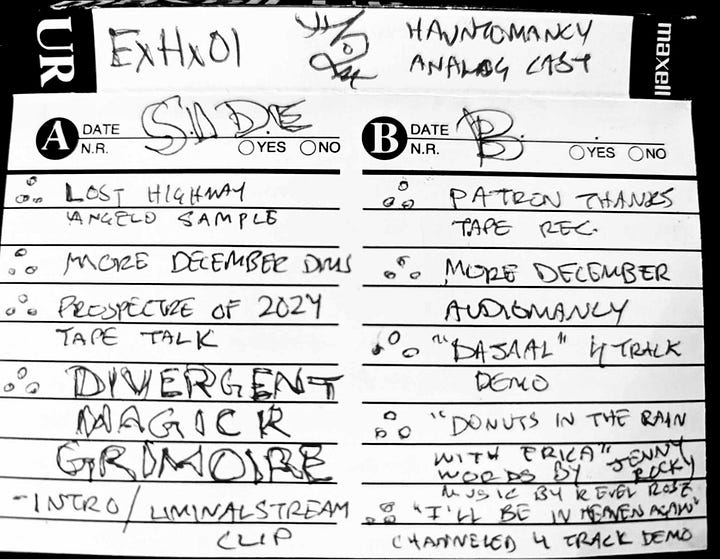 UR
ExHx01
HAUNTOMANCY
ANALOG CAST
maxell
A DATE SIDE
N.R. YES NO
LOST HIGHWAY
ANGELO SAMPLE
MORE DECEMBER DMS
PROSPECTRE OF 2024
TAPE TALK
DIVERGENT
MAGICK
GRIMOIRE
-INTRO/LIMINALSTREAM
CLIP
B DATE B.
N.R. YES NO
PATRON THANKS
TAPE REC.
MORE DECEMBER
AUDIOMANCY
"DAJAAL" 4 TRACK
DEMO
"DONUTS IN THE RAIN
WITH ERICA" JENNY
WORDS BY ROCKY
MUSIC BY REVEL ROSZ
"I'LL BE IN HEAVEN AGAIN"
CHANNELED 4 TRACK DEMO